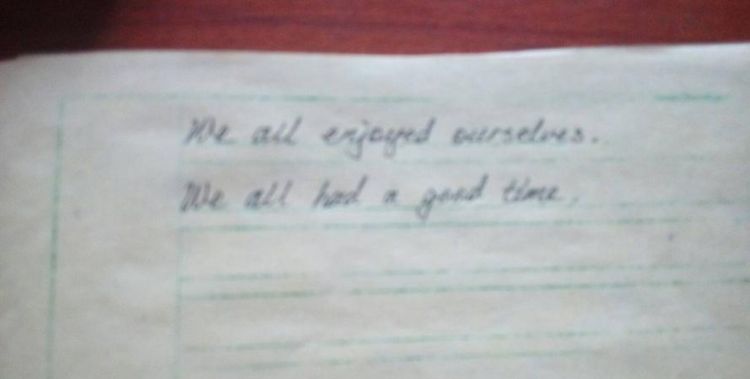 We all enjoyed ourselves.
We all had a good time.